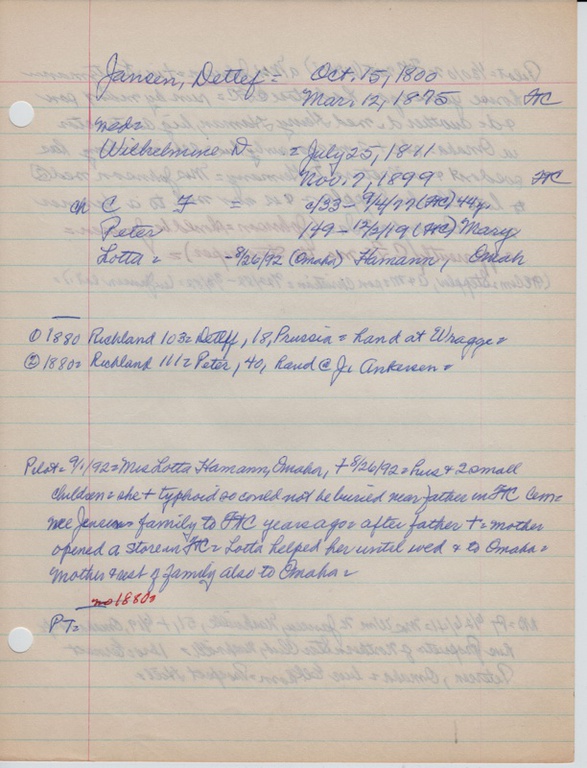 Jansen, Detlef = Oct. 15, 1800
Mar. 12, 1875 FC
med=
Wilhelmine D = July 25, 1811
Nov. 7, 1899 FC
ch C F = c/33 - 9/4/77 (FC) 44y
Peter 1/49 - 12/2/19 (FC) Mary
Lotta = - 8/26/92 (Omaha) Hamann, Omah
① 1880 Richland 103= Detlef, 18, Prussia = hand at Wragge=
② 1880= Richland 111= Peter, 40, hand @ J. Ankersen =
Pilot= 9/1/92 = Mrs Lotta Hamann, Omaha, + 8/26/92 = hus + 2 small
children = she + typhoid so could not be buried near father in FC Cem =
nee Jensen = family to FC years ago = after father + = mother
opened a store in FC = Lotta helped her until wed & to Omaha =
Mother & rest of family also to Omaha =
no 1880=
PT=